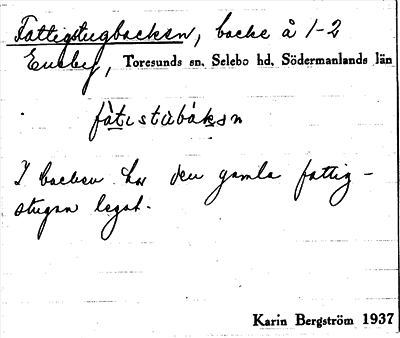 Fattigstugbacken, backe å 1-2
Eueby, Toresunds sn. Selebo hd. Södermanlands län
I backen har den gamla fattig-
stugan legat.
Karin Bergström 1937